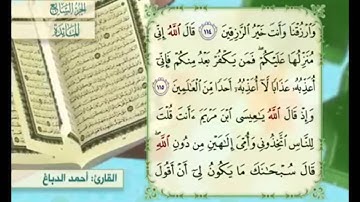 الجزء السابع
المائدة
وَارْزُقْنَا وَأَنتَ خَيْرُ الرَّازِقِينَ ١١٤ قَالَ اللَّهُ إِنِّي
مُنَزِّلُهَا عَلَيْكُمْ فَمَن يَكْفُرْ بَعْدُ مِنكُمْ فَإِنِّي
أُعَذِّبُهُ عَذَابًا لَّا أُعَذِّبُهُ أَحَدًا مِّنَ الْعَالَمِينَ ١١٥
وَإِذْ قَالَ اللَّهُ يَعِيسَى ابْنَ مَرْيَمَ ءَأَنتَ قُلْتَ
لِلنَّاسِ اتَّخِذُونِي وَأُمِّيَ إِلَهَيْنِ مِن دُونِ اللَّهِ
قَالَ سُبْحَنَكَ مَا يَكُونُ لِي أَنْ أَقُولَ
القارئ: أحمد الدباغ